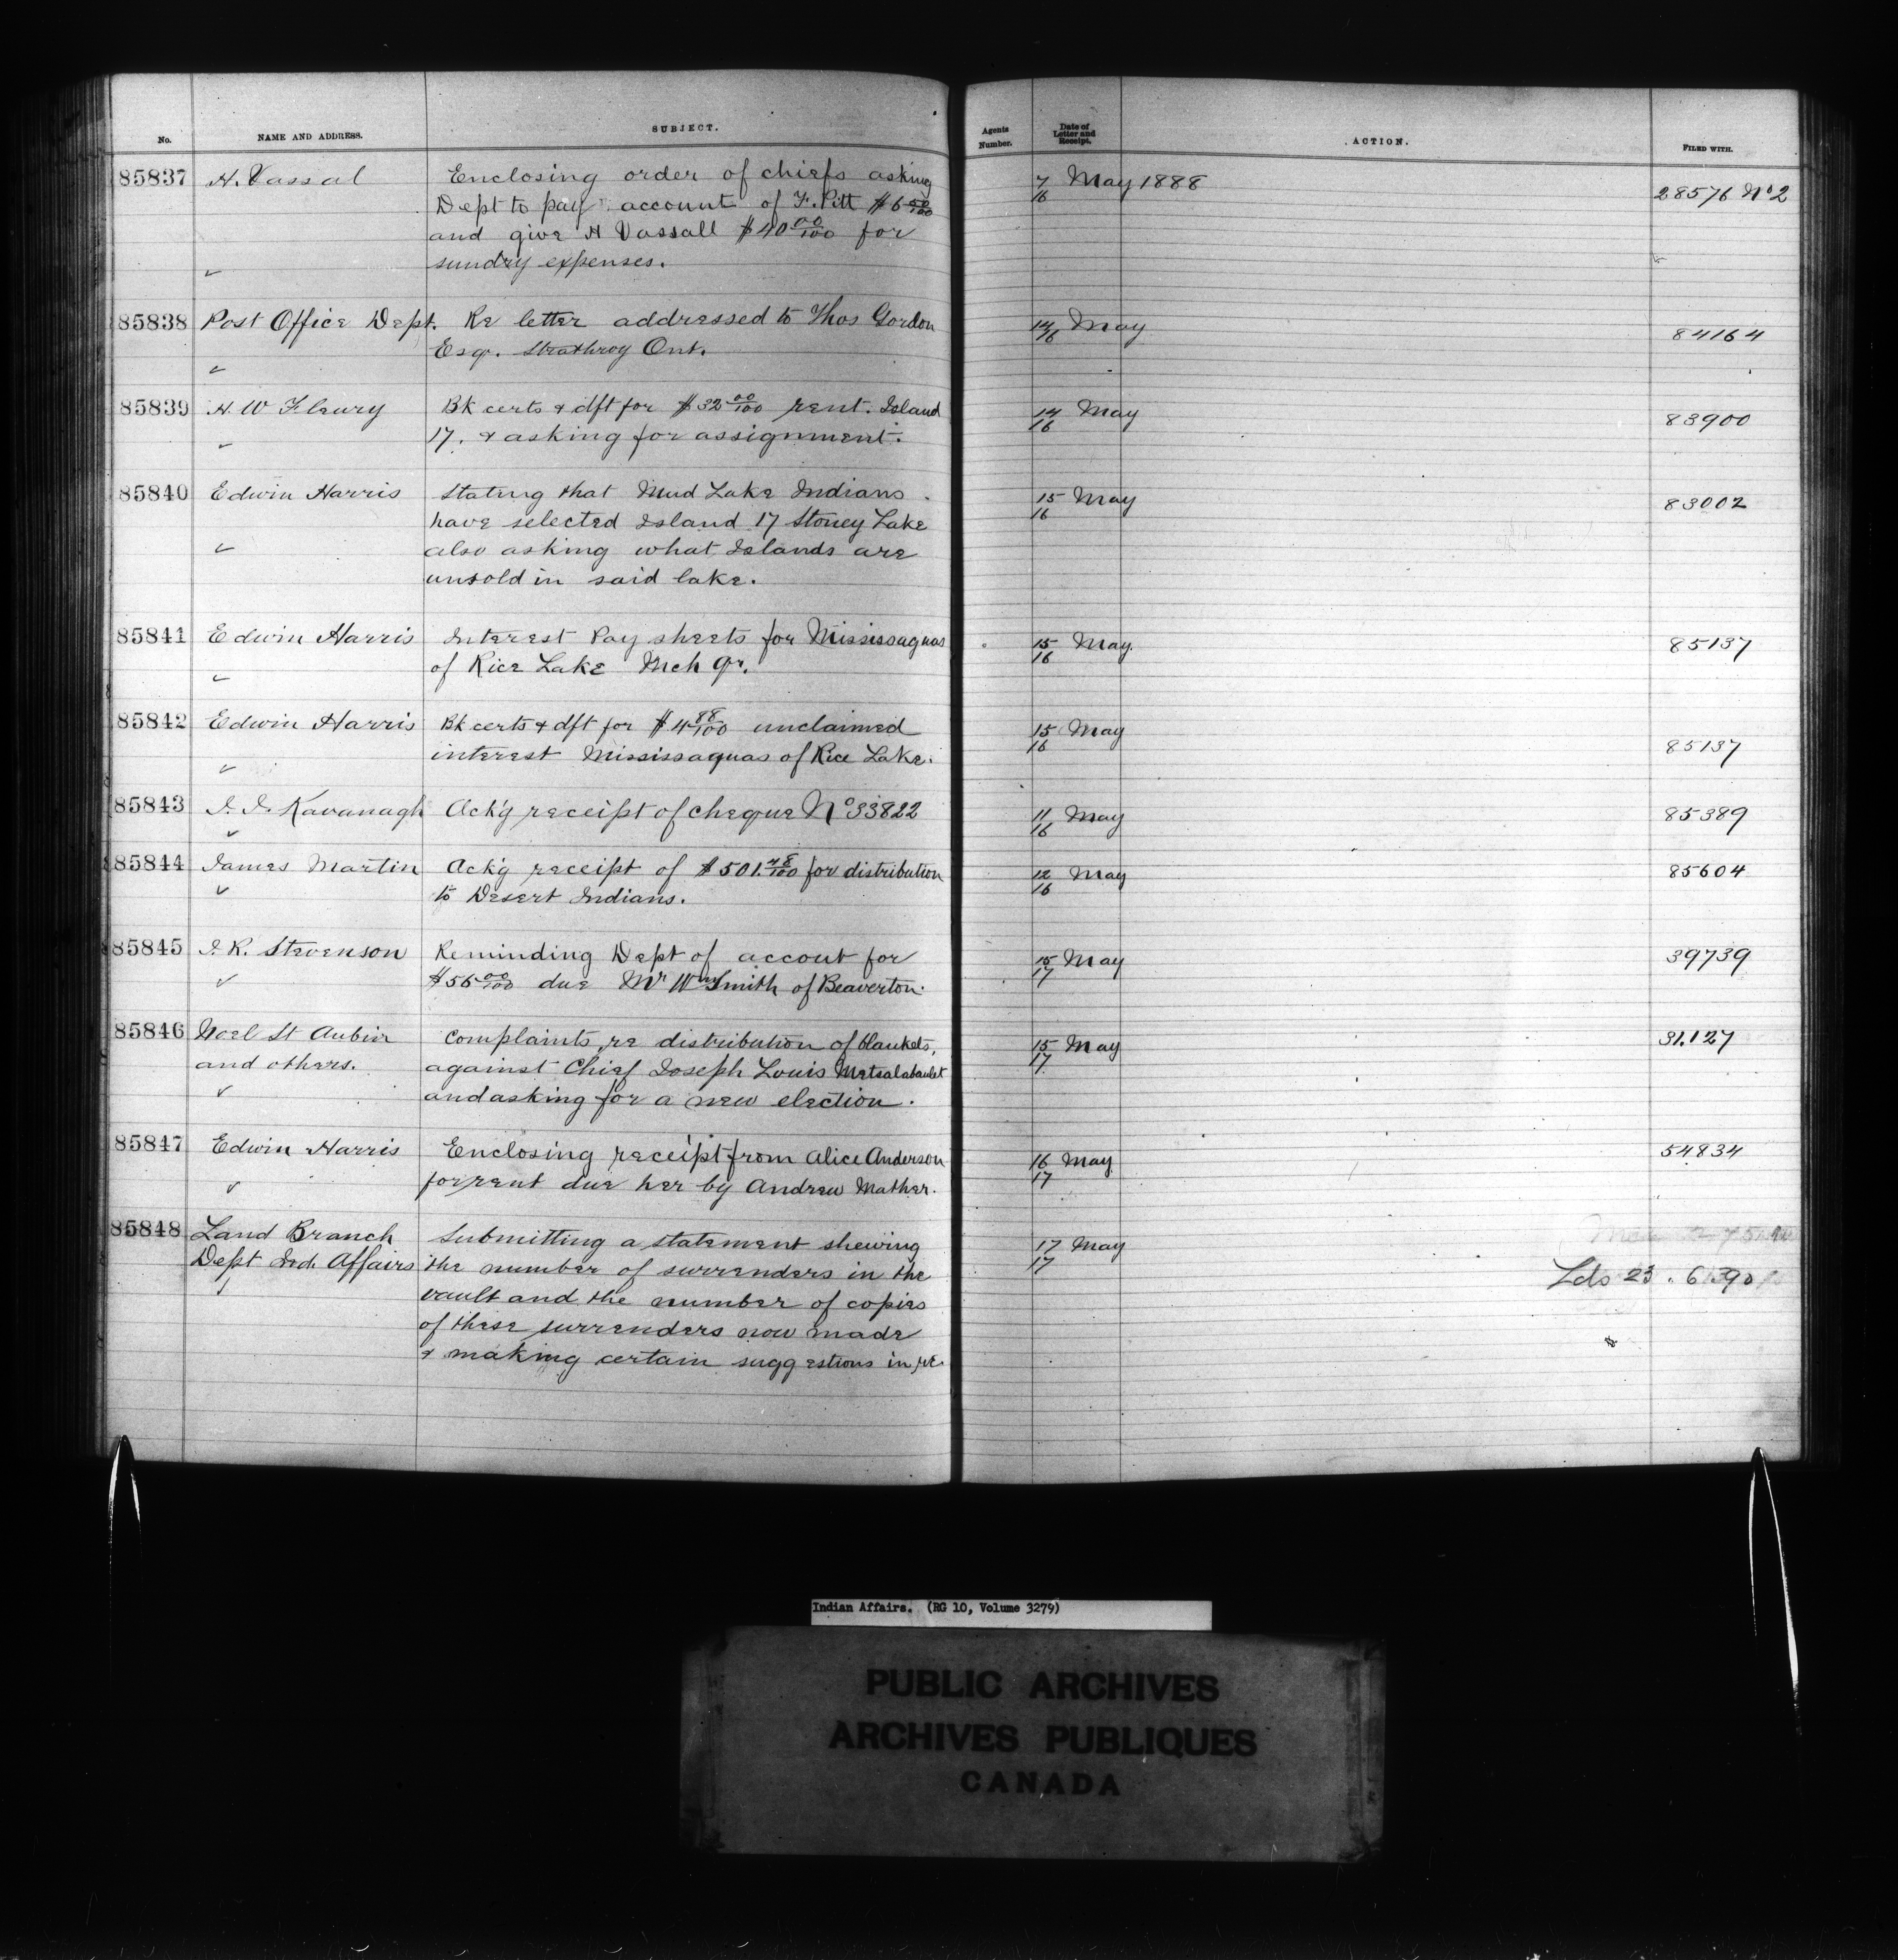 No. NAME AND ADDRESS. SUBJECT. Agents Number. Date of Letter and Receipt. ACTION. FILED WITH.
85837 H. Vassal Enclosing order of chiefs asking 7/16 May 1888 28576 No 2
Dept to pay account of F. Pitt $6 50/100
and give H Vassall $40 00/100 for
sundry expenses.
85838 Post Office Dept. Re letter addressed to Thos Gordon 14/16 May 84164
Esq. Strathroy Ont.
85839 H W Fleury Bk certs & dft for $32 00/100 rent. Island 14/16 May 83900
17. & asking for assignment.
85840 Edwin Harris Stating that Mud Lake Indians 15/16 May 83002
have selected Island 17 Stoney Lake
also asking what Islands are
unsold in said lake.
85841 Edwin Harris Interest Pay sheets for Mississaguas 15/16 May 85137
of Rice Lake Mch qr.
85842 Edwin Harris Bk certs & dft for $4 88/100 unclaimed 15/16 May 85137
interest Mississaguas of Rice Lake.
85843 J. J. Kavanagh Ack'g receipt of cheque No 33822 11/16 May 85389
85844 James Martin Ack'g receipt of $501.48/100 for distribution 12/16 May 85604
to Desert Indians.
85845 J. R. Stevenson Reminding Dept of accout for 15/17 May 39739
$56 00/100 due Mr Wm Smith of Beaverton.
85846 Noel St Aubin Complaints, re distribution of blankets, 15/17 May 31.127
and others. against Chief Joseph Louis
and asking for a new election.
85847 Edwin Harris Enclosing receipt from Alice Anderson 16/17 May 54834
for rent due her by Andrew Mather.
85848 Land Branch Submitting a statement shewing 17/17 May
Dept Ind. Affairs the number of surrenders in the Lds 23. 6390
vault and the number of copies
of these surrenders now made
& making certain suggestions in re.
Indian Affairs. (RG 10, Volume 3279)
PUBLIC ARCHIVES
ARCHIVES PUBLIQUES
CANADA